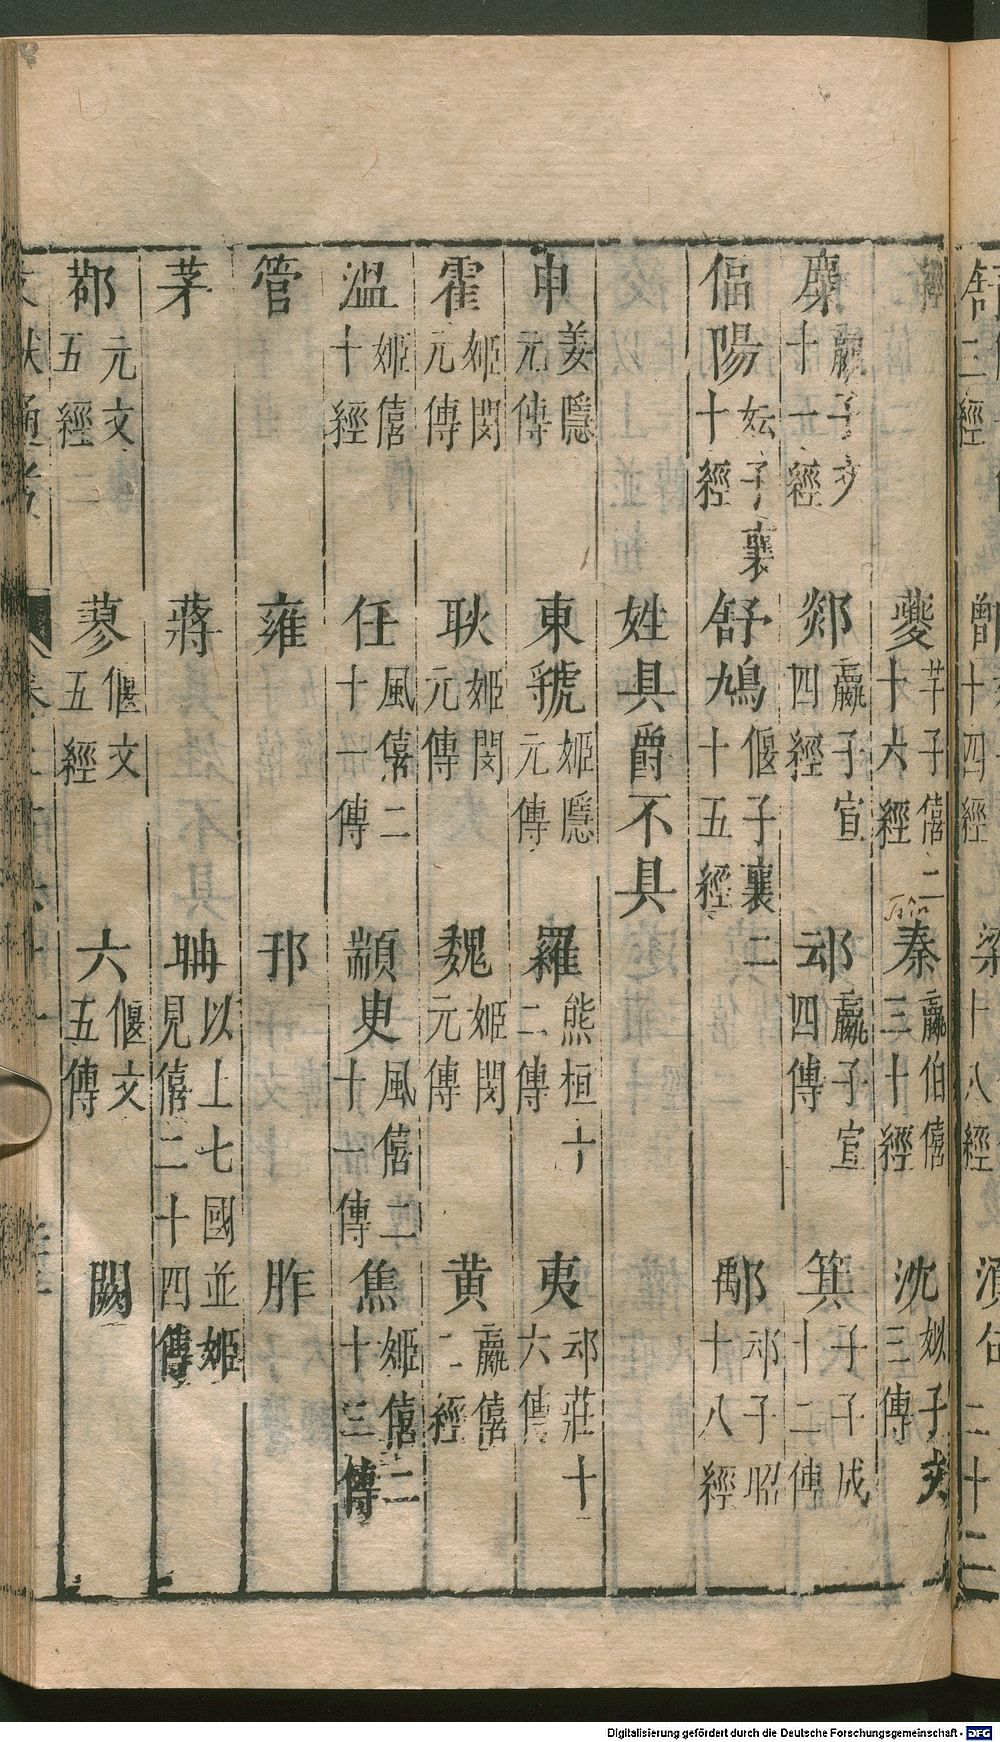 經 夔 羋子僖二十六經 Tsin 秦 嬴伯僖三十經 沈 姒子文三傳
麇 嬴子文十一經 郯 嬴子宣四經 嬴子宣四傳 箕 子子成十二傳
偪陽 妘子襄十經 舒鳩 偃子襄二十五經 鄅 子昭十八經
姓具爵不具
申 姜隱元傳 東虢 姬隱元傳 羅 熊桓十二傳 夷 莊十六傳
霍 姬閔元傳 耿 姬閔元傳 魏 姬閔元傳 黄 嬴僖二經
溫 姬僖十經 任 風僖二十一傳 顓臾 風僖二十一傳 焦 姬僖二十三傳
管 雍 邘 胙
茅 蔣 聃 以上七國並姬見僖二十四傳
鄀 元文五經二 蓼 偃文五經 六 偃文五傳 闕
Digitalisierung gefördert durch die Deutsche Forschungsgemeinschaft - DFG